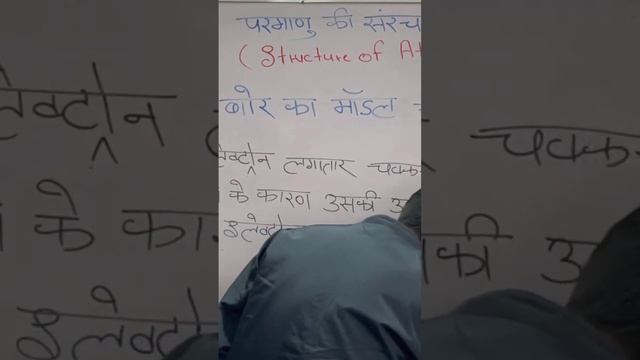 परमाणु की संरच
(Structure of At
बोर का मॉडल
लेक्ट्रोन लगातार चक्क
के कारण उसकी उ
इलेक्ट्रो